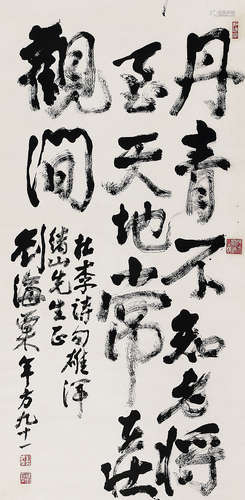 丹青不知老将
至天地常在壮
觀间
杜李诗句雄浑
绮山先生正
刘海粟年方九十一